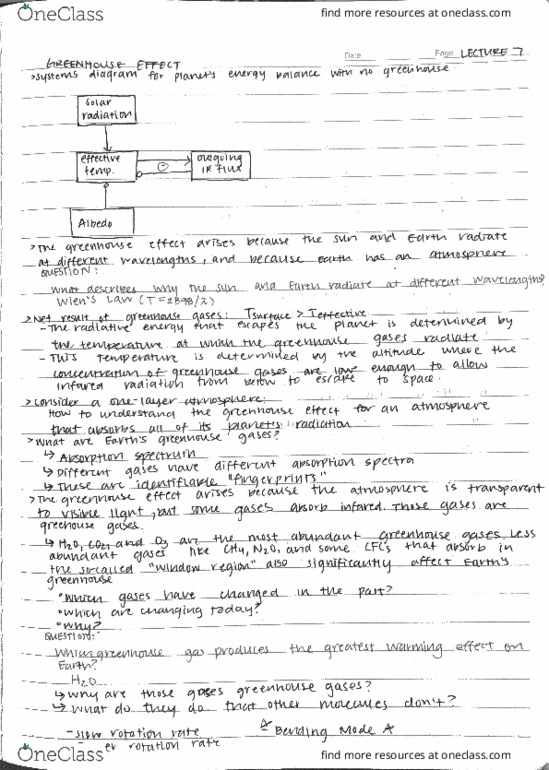 OneClass
find more resources at oneclass.com
Date
Page LECTURE 7
GREENHOUSE EFFECT
>systems diagram for planet's energy balance with no greenhouse.
solar radiation
effective temp.
outgoing IR flux
Albedo
>The greenhouse effect arises because the sun and Earth radiate
at different wavelengths, and because Earth has an atmosphere
QUESTION:
What describes why the sun and Earth radiate at different wavelengths?
Wien's Law (T=2898/λ)
>Net result of greenhouse gases: Tsurface > Teffective
-The radiative energy that escapes the planet is determined by
the temperature at which the greenhouse gases radiate
- This temperature is determined by the altitude where the
concentration of greenhouse gases are low enough to allow
infared radiation from below to escape to space.
>Consider a one-layer atmosphere:
How to understand the greenhouse effect for an atmosphere
that absorbs all of its planet's radiation
>What are Earth's greenhouse gases?
↳ Absorption spectrum
↳ Different gases have different absorption spectra
↳ These are identifiable "fingerprints"
>The greenhouse effect arises because the atmosphere is transparent
to visible light, but some gases absorb infared. Those gases are
greehouse gases.
↳ H2O, CO2, and O3 are the most abundant greenhouse gases. Less
abundant gases like CH4, N2O, and some CFCs that absorb in
the so-called "window region" also significantly affect Earth's
greenhouse
•Which gases have changed in the past?
•Which are changing today?
•Why?
QUESTION:
Which greenhouse gas produces the greatest warming effect on
Earth?
H2O
↳ Why are those gases greenhouse gases?
↳ What do they do that other molecules don't?
-slow rotation rate
Bending Mode
er rotation rate
OneClass
find more resources at oneclass.com